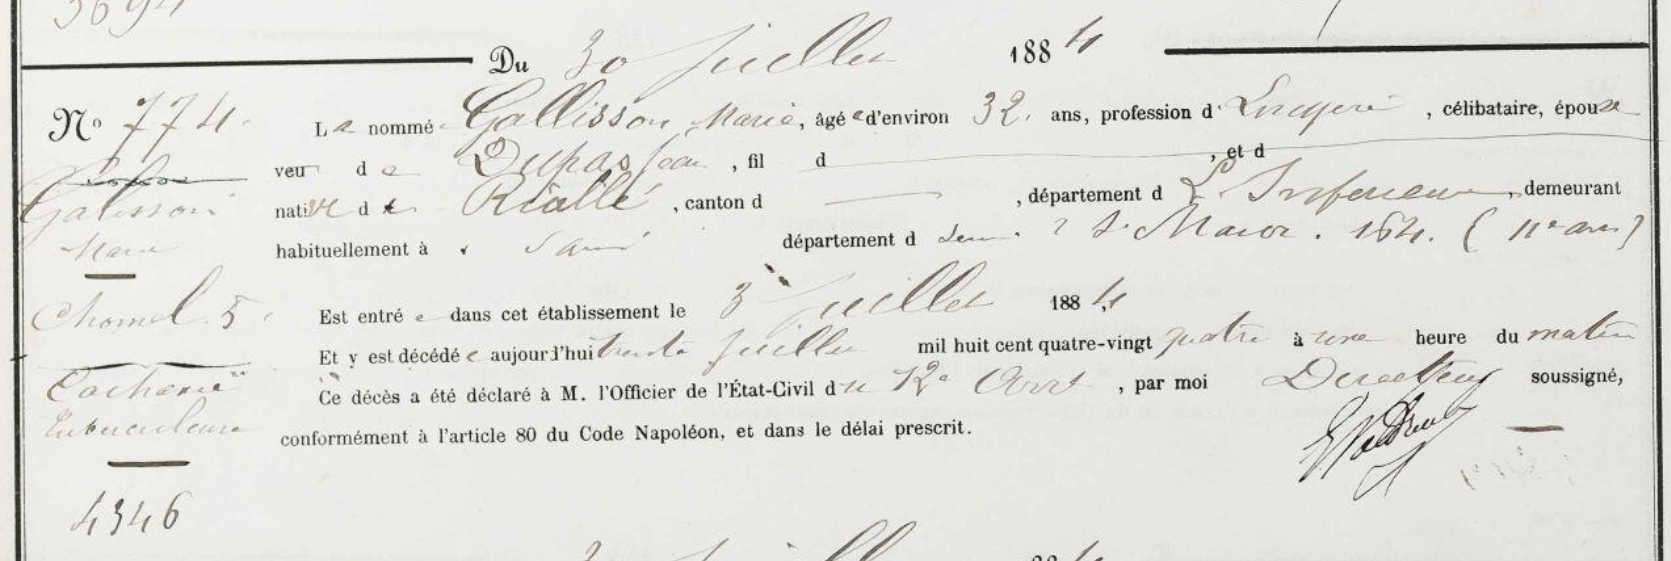 Du 30 Juillet 1884
N° 774. La nommée Gallisson Marie, âgée d'environ 32 ans, profession d' Lingère, célibataire, épouse
veuve de Dupas Jean, fil d , et d
Galisson native de Riallé, canton d , département d L. Inférieure, demeurant
Marie habituellement à Paris département d Seine. St Maur. 164. (11e arr)
Chomel 5 Est entrée dans cet établissement le 3 Juillet 1884
Et y est décédée aujourd'hui trente Juillet mil huit cent quatre-vingt quatre à une heure du matin
Cachexie Ce décès a été déclaré à M. l'Officier de l'État-Civil du 12e Arrt, par moi Directeur soussigné,
tuberculeuse conformément à l'article 80 du Code Napoléon, et dans le délai prescrit.
4346